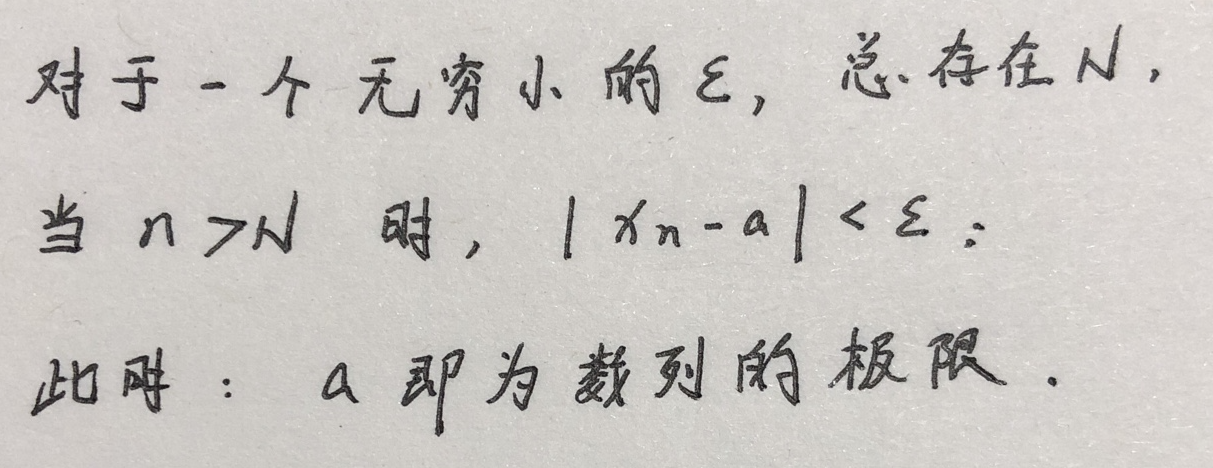 对于一个无穷小的 ε, 总存在 N,
当 n > N 时, | xn - a | < ε ;
此时: a 即为数列的极限.